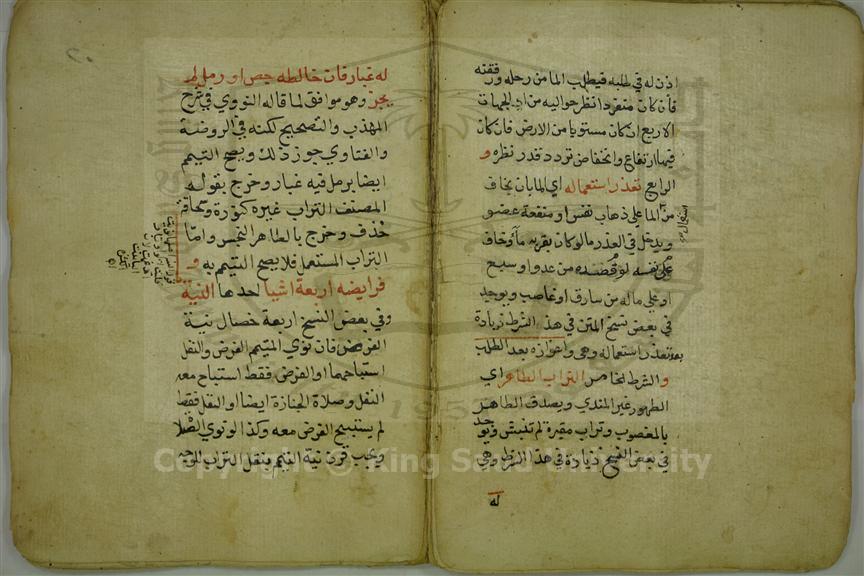 اذن له في طلبه فيطلب الما من رحله ورفقته
فان كان منفردا نظر حواليه من الجهات
الاربع ان كان مستويا من الارض فان كان
فيها ارتفاع وانخفاض تردد قدر نظره و
الرابع تعذر استعماله اي الما بان يخاف
من الما على ذهاب نفس او منفعة عضو
ويدخل في العذر ما لو كان بقربه ما وخاف
على نفسه لو قصده من عدو او سبع
او على ماله من سارق او غاصب ويوجد
في بعض نسخ المتن في هذا الشرط زيادة
بعد تعذر استعماله وهي واعوازه بعد الطلب
والشرط الخامس التراب الطاهر اي
الطهور غير المندي ويصدق الطاهر
بالمغصوب وتراب مقبرة لم تنبش ويوجد
في بعض النسخ زيادة في هذا الشرط وهي
له
له غبار فان خالطه جص او رمل لم
يجز وهو موافق لما قاله النووي في شرح
المهذب والتصحيح لكنه في الروضة
والفتاوي جوز ذلك ويصح التيمم
ايضا برمل فيه غبار وخرج بقول
المصنف التراب غيره كنورة وسحاقة
خذف وخرج بالطاهر النجس واما
التراب المستعمل فلا يصح التيمم به و
فرايضه اربعة اشيا احدها النية
وفي بعض النسخ اربعة خصال نية
الفرض فان نوي المتيمم الفرض والنفل
استباحهما او الفرض فقط استباح معه
النفل وصلاة الجنازة ايضا او النفل فقط
لم يستبيح الفرض معه وكذا لو نوي الصلا
ويجب قرن نية التيمم بنقل التراب للوجه
Copyright © King Saud University